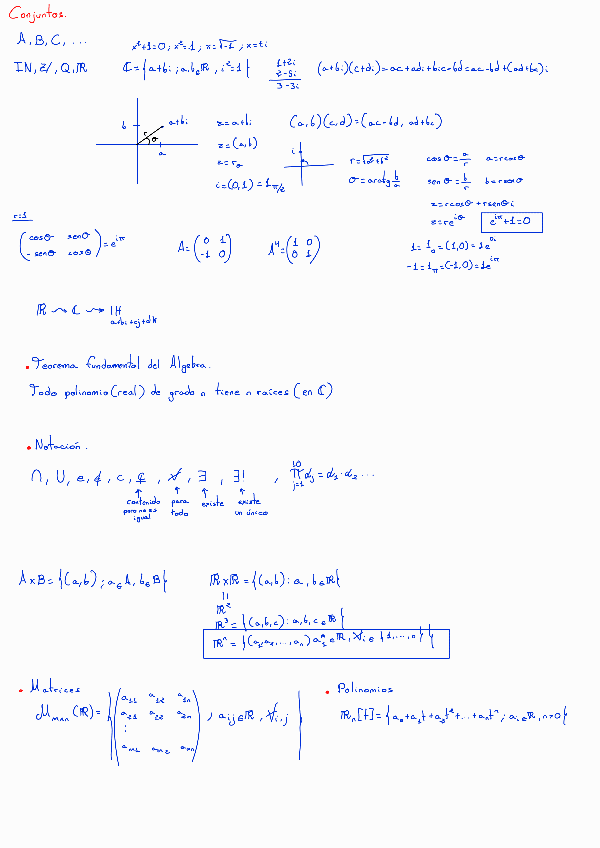 Conjuntos.
A, B, C, ...
x²+1=0 ; x²=-1 ; x=√-1 ; x=±i
ℕ, ℤ, ℚ, ℝ
ℂ = {a+bi ; a,b∈ℝ, i²=-1}
1+2i
2-5i
3-3i
(a+bi)(c+di)=ac+adi+bic-bd=ac-bd+(ad+bc)i
b
a+bi
r
θ
a
z=a+bi
z=(a,b)
z=r_θ
i=(0,1)=1_π/2
(a,b)(c,d)=(ac-bd, ad+bc)
i
r=√a²+b²
θ=arctg b/a
cosθ=a/r a=rcosθ
senθ=b/r b=rsenθ
z=rcosθ+rsenθi
z=re^iθ
e^iπ+1=0
r=1
(cosθ senθ
-senθ cosθ)=e^iπ
A=(0 1
-1 0)
A⁴=(1 0
0 1)
1=1₀=(1,0)=1e^0i
-1=1_π=(-1,0)=1e^iπ
ℝ ⇝ ℂ ⇝ ℍ
a+bi+cj+dk
• Teorema fundamental del Algebra.
Todo polinomio (real) de grado n tiene n raíces (en ℂ)
• Notación.
∩, ∪, ∈, ∉, ⊂, ⊊, ∀, ∃, ∃!, ∏_{j=1}^{10} α_j = α₁·α₂ ...
contenido pero no es igual
para todo
existe
existe un único
A×B={(a,b) ; a∈A, b∈B}
ℝ×ℝ={(a,b): a,b∈ℝ}
=
ℝ²
ℝ³={(a,b,c): a,b,c∈ℝ}
ℝⁿ={(a₁,a₂,...,aₙ) aᵢ∈ℝ, ∀i∈{1,...,n}}
• Matrices
M_mxn (ℝ)={(a₁₁ a₁₂ a₁ₙ
a₂₁ a₂₂ a₂ₙ
⋮
a_m1 a_m2 a_mn), aij∈ℝ, ∀i,j}
• Polinomios
ℝₙ[t]={a₀+a₁t+a₂t²+...+aₙtⁿ ; aᵢ∈ℝ, n>0}